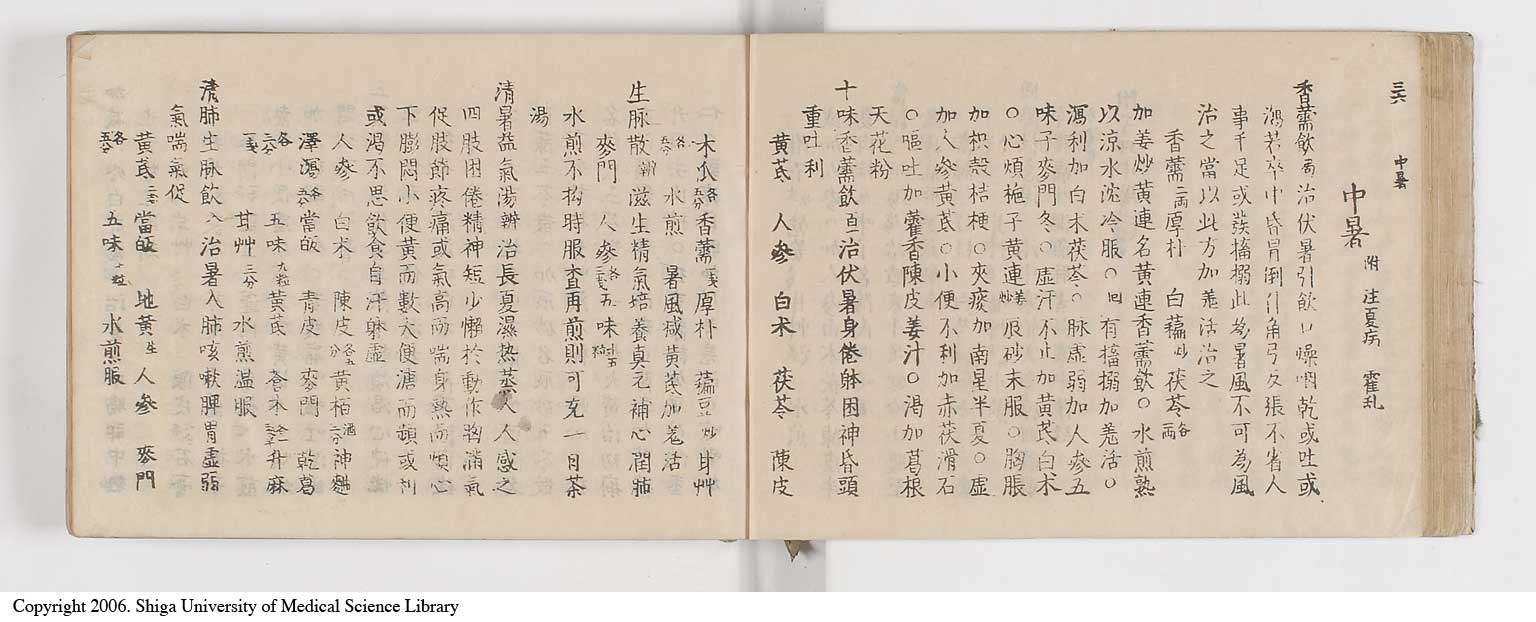 三六 中暑
中暑 附 注夏病 霍乱
香薷飲 局 治伏暑引飲口燥咽乾或吐或
瀉若卒中昏冒倒仆角弓反張不省人
事手足或發搐搦此為暑風不可為風
治之當以此方加羗活治之
香薷 二両 厚朴 白藊 炒 茯苓 各一両
加姜炒黄連名黄連香薷飲○水煎熟
以涼水沈冷服○ 回 有搐搦加羗活○
瀉利加白朮茯苓○脉虚弱加人參五
味子麥門冬○虚汗不止加黄芪白朮
○心煩梔子黄連 炒 辰砂末服○胸脹
加枳殻桔梗○夾痰加南星半夏○虚
加人參黄芪○小便不利加赤茯滑石
○嘔吐加藿香陳皮姜汁○渇加葛根
天花粉
十味香薷飲 治伏暑身倦躰困神昏頭
重吐利
黄芪 人參 白朮 茯苓 陳皮
木瓜 各五分 香薷 厚朴 藊豆 炒 甘艸
各五分 水煎○暑風减黄芪加羗活
生脉散 辨 滋生精氣培養真元補心潤肺
麥門 人參 五味
水煎不拘時服査再煎則可充一日茶
湯
清暑益氣湯 辨 治長夏濕热蒸人人感之
四肢困倦精神短少懶於動作胸滿氣
促肢節疼痛或氣高而喘身熱而煩心
下膨悶小便黄而數大便溏而頻或利
或渇不思飲食自汗躰虚
人參 白朮 陳皮 黄栢 酒 神麯
澤瀉 當皈 青皮 麥門 乾葛
五味 九粒 黄芪 蒼朮 升麻
甘艸 三分 水煎温服
清肺生脉飲 入 治暑入肺咳嗽脾胃虚弱
氣喘氣促
黄芪 二戋 當皈 地黄 生 人參 麥門
各五分 五味 十粒 水煎服
Copyright 2006. Shiga University of Medical Science Library